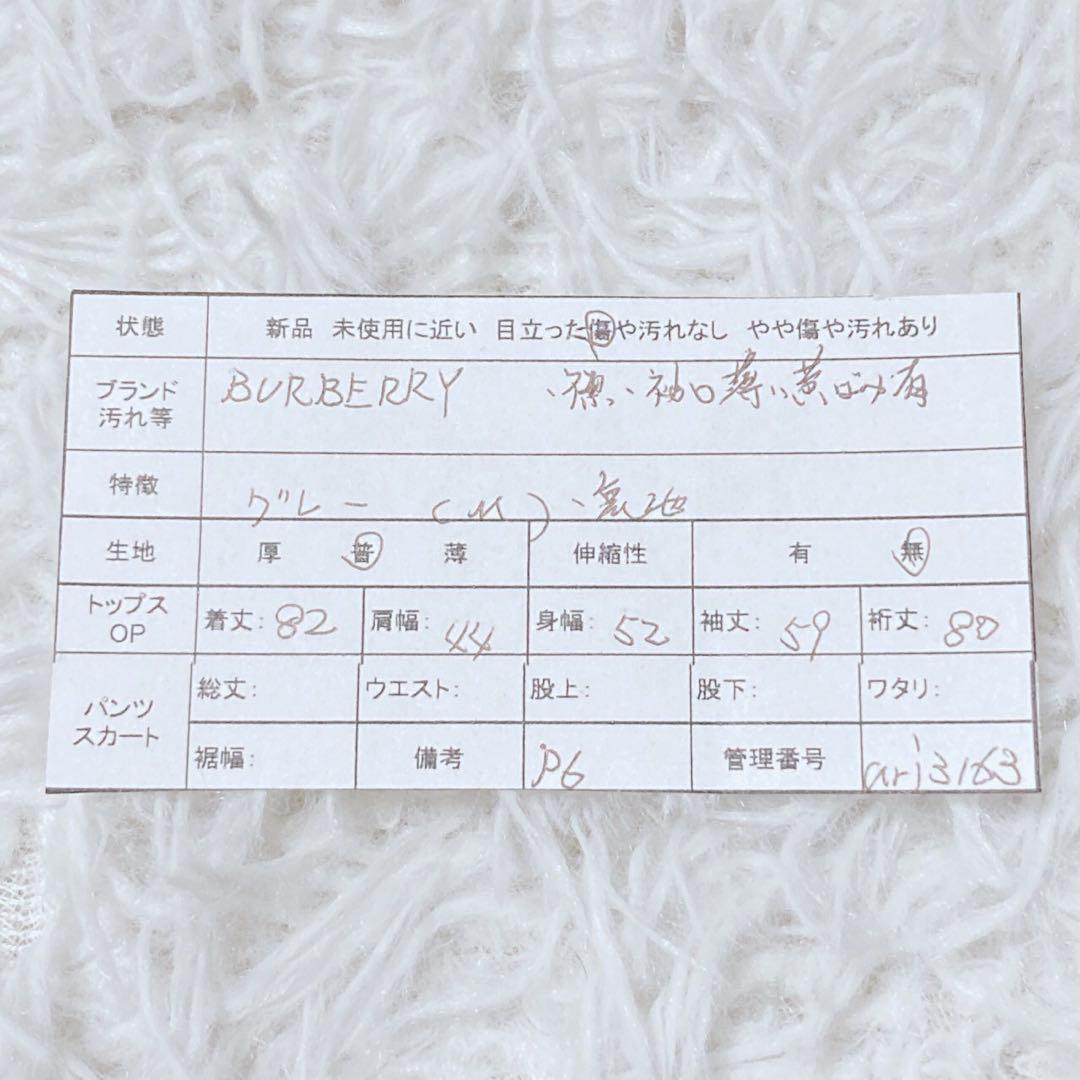 状態 新品 未使用に近い 目立った傷や汚れなし やや傷や汚れあり
ブランド
汚れ等 BURBERRY 、襟、袖口薄い黄ばみ有
特徴 グレー (M)、裏地
生地 厚 普 薄 伸縮性 有 無
トップス
OP 着丈: 82 肩幅: 44 身幅: 52 袖丈: 59 裄丈: 80
パンツ
スカート 総丈: ウエスト: 股上: 股下: ワタリ:
裾幅: 備考 P6 管理番号 arj3163